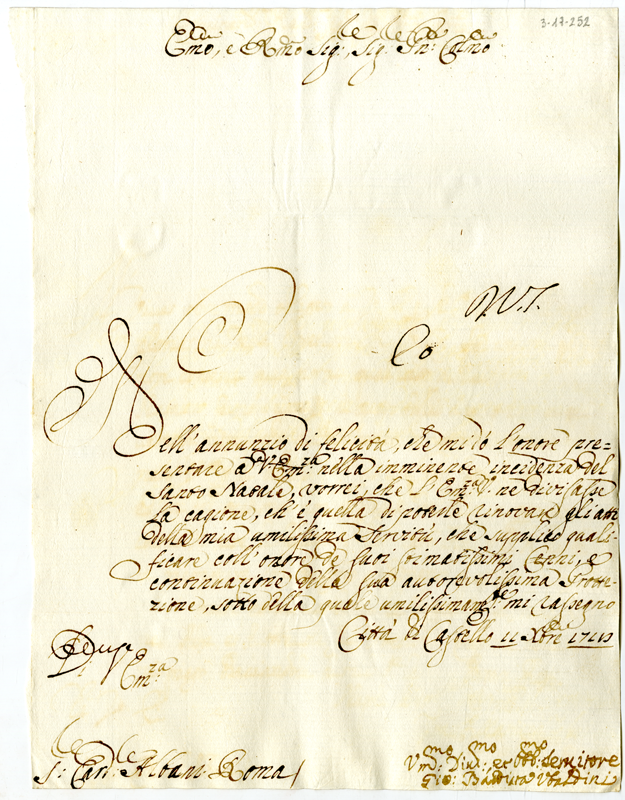 3-17-252
Emo, e Rmo Sig:, Sig:
Nell'annunzio di felicità, che mi dò l'onore pre=
sentare a V: Emza: nella imminente incidenza del
Santo Natale, vorrei, che l'Emza V: ne divisasse
la cagione, ch'è quella di poterle rinovare gli atti
della mia umilissima Servitù, che supplico quali=
ficare coll'onore de suoi stimatissimi Cenni, e
continuazione della sua autorevolissima Prote=
zione, sotto della quale umilissimamte: mi rassegno
Città di Castello 11 Xbre
Emza:
S: Card: Albani Roma
Vmo: Divmo: et Obbmo: Servitore
Gio: Battista Vbaldini